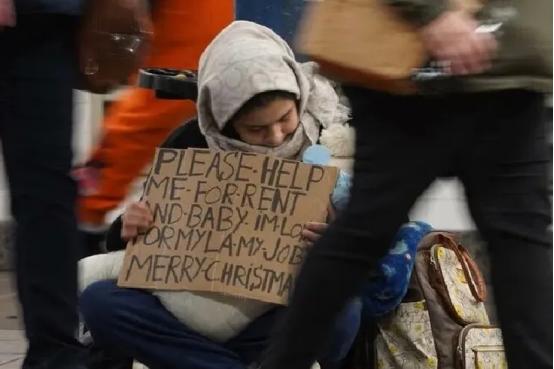 PLEASE-HELP
ME-FOR-RENT
ND-BABY-IM-LO
FOR MY LA-MY JOB
MERRY-CHRISTMA